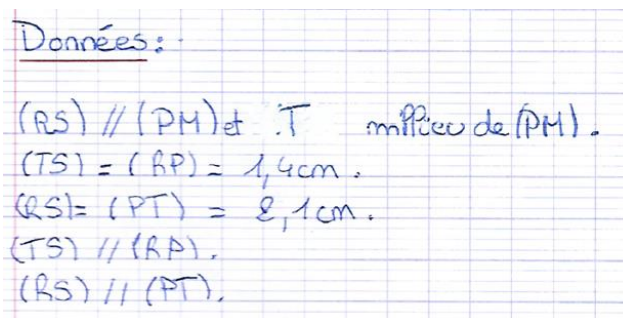 Données :
(RS) // (PM) et T milieu de (PM).
(TS) = (RP) = 1,4cm.
(RS) = (PT) = 2,1cm.
(TS) // (RP).
(RS) // (PT).